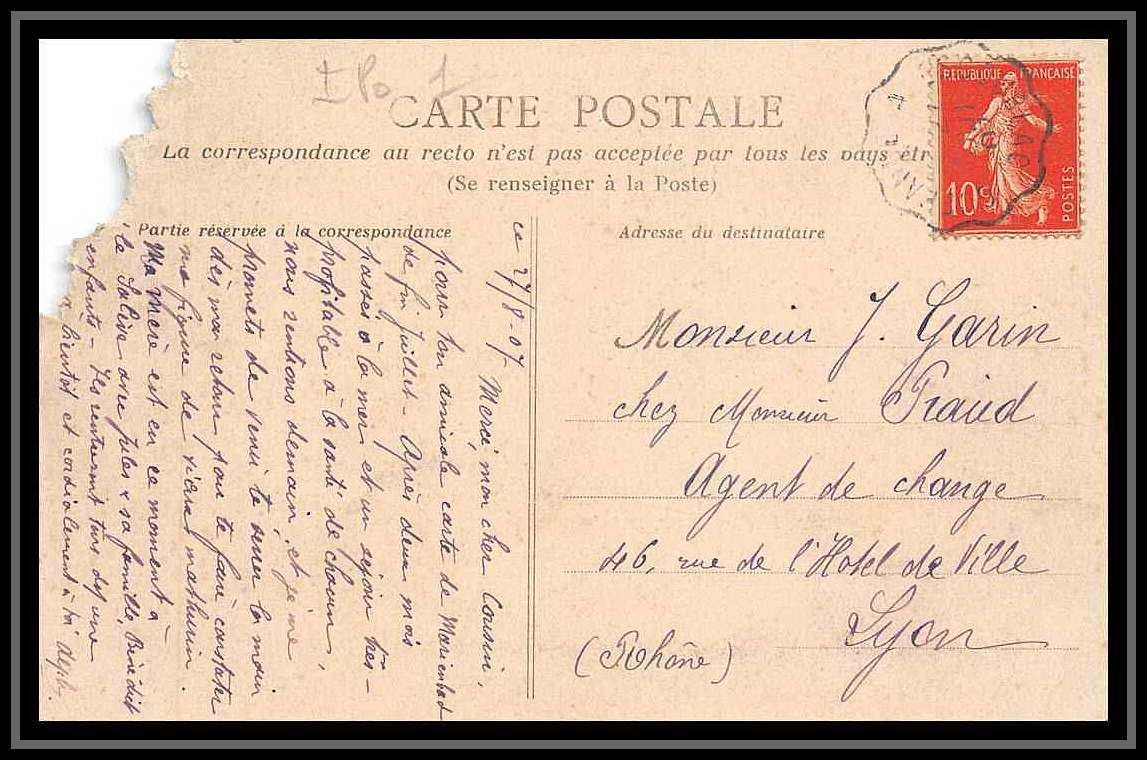 CARTE POSTALE
La correspondance au recto n'est pas acceptée par tous les pays étr
(Se renseigner à la Poste)
REPUBLIQUE FRANÇAISE
10c
POSTES
Partie réservée à la correspondance
ce 27/8-07
Merci, mon cher Cousin,
pour ton amicale carte de Marienbad
de fin Juillet - Après deux mois
passés à la mer et un séjour très-
profitable à la santé de chacun,
nous rentrons demain, et je me
promets de venir te serrer la main
dès mon retour pour te faire constater
ma figure de vieux mathurin.
Ma Mère est en ce moment à
la Salive avec Jules & sa famille, Bénédit
enfants - Ils rentreront tous
bientôt et cordialement à toi
Adresse du destinataire
Monsieur J. Garin
chez Monsieur Fraud
Agent de change
46, rue de l'Hotel de Ville
Lyon
(Rhône)